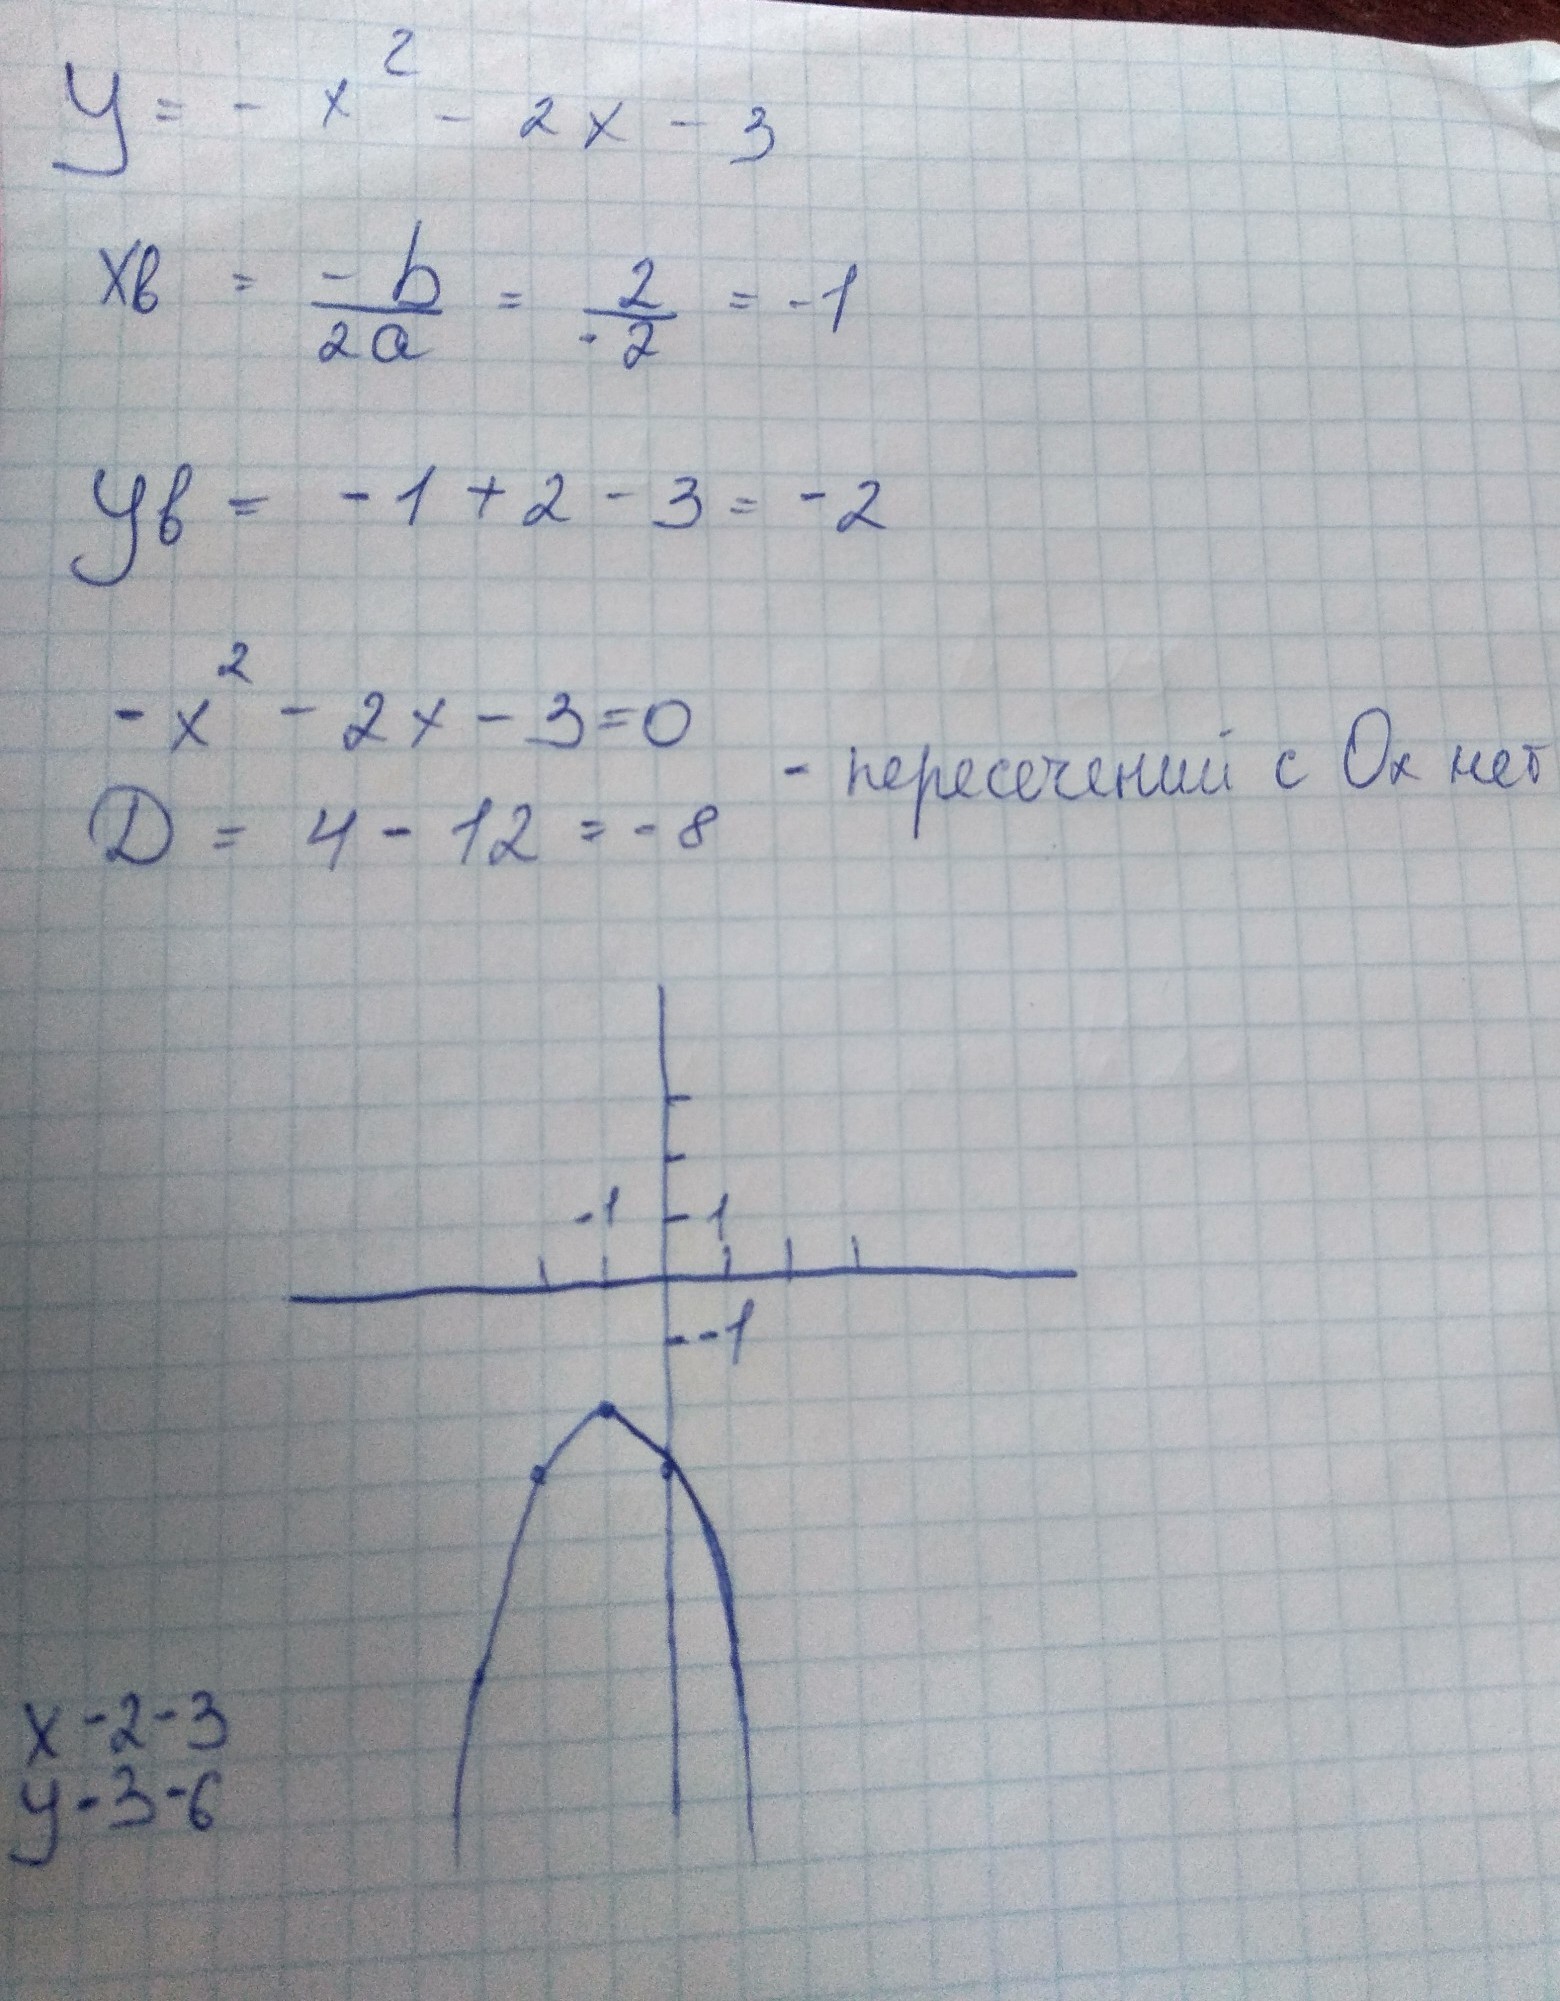 y = - x² - 2x - 3
xв = -b/2a = 2/-2 = -1
yв = -1 + 2 - 3 = -2
-x² - 2x - 3 = 0
D = 4 - 12 = -8 - пересечений с Ox нет
-1 1
-1
x -2 -3
y -3 -6